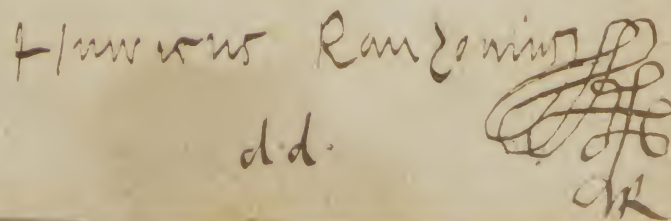 Hinricus Ranzouius
d.d.
HR